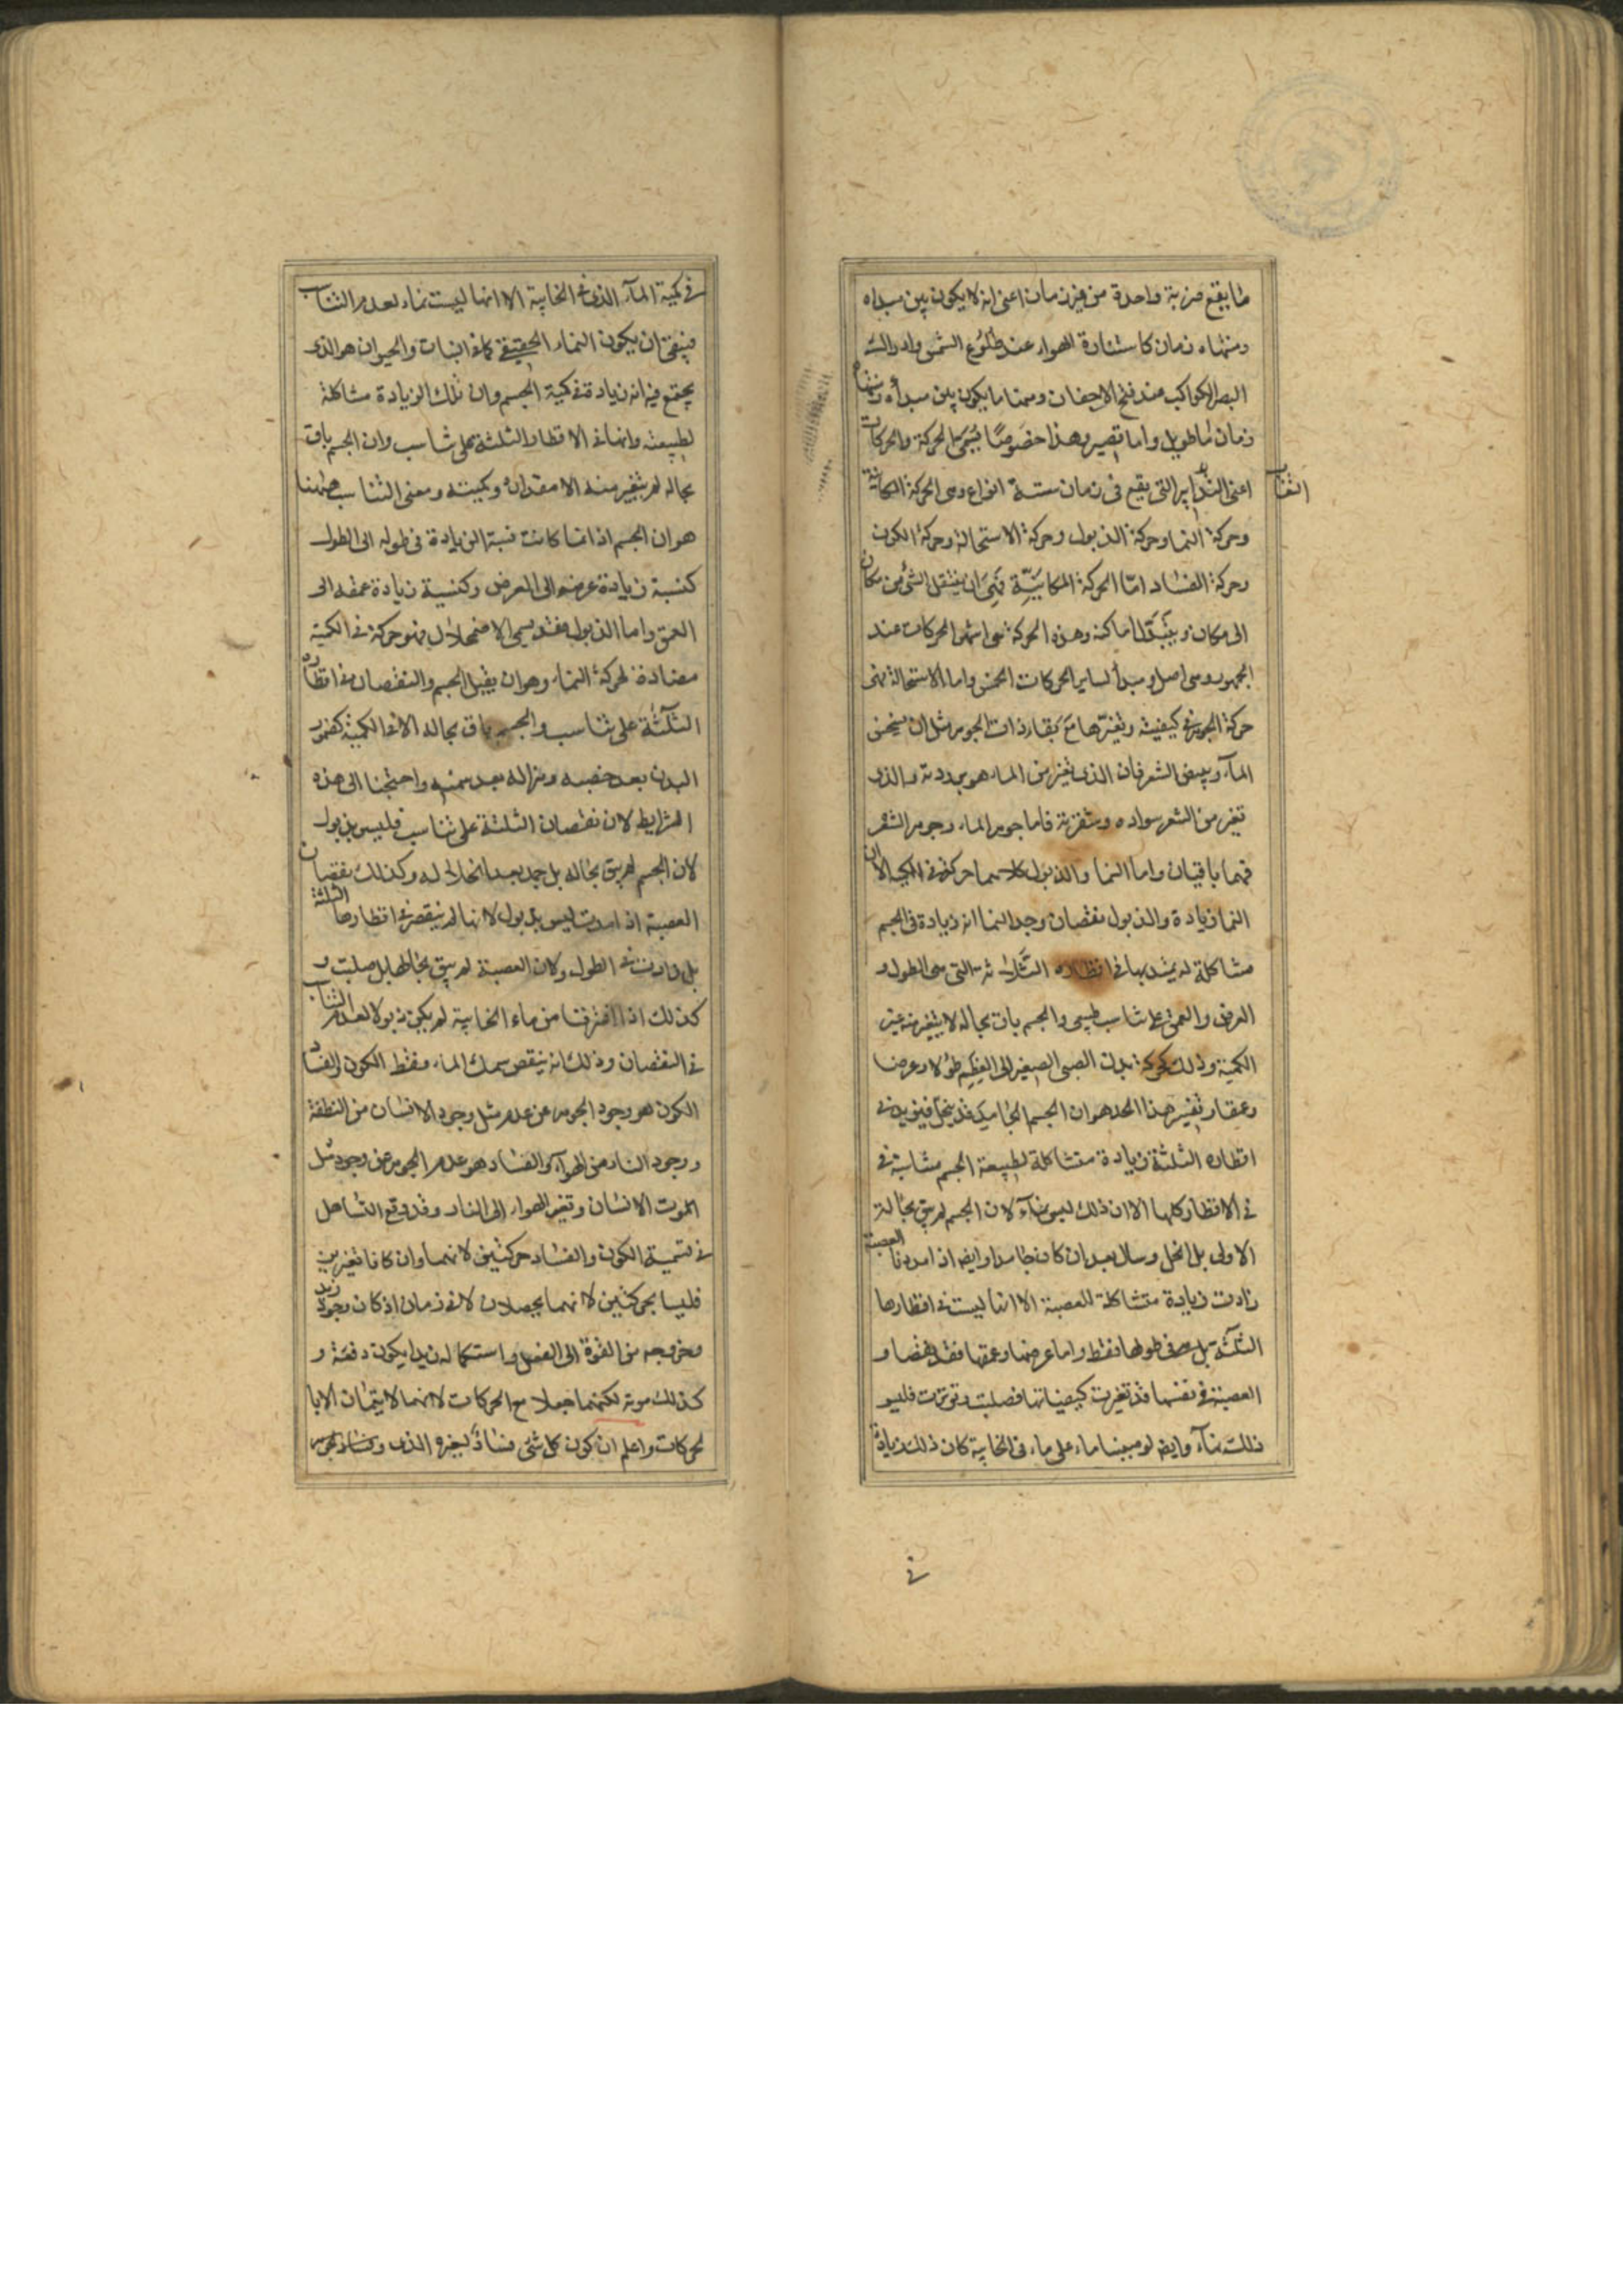 ما يقع ضربة واحدة من غير زمان اعنى انه لا يكون بين مبداه
ومنتهاه زمان كاستنارة الهواء عند طلوع الشمس وادراك
البصر الكواكب عند فتح الاجفان ومنها ما يكون بين مبدأه ومنتهاه
زمان اما طويل واما قصير وهذا خصوصًا يسمى الحركة والحركات
اعنى التغاير التى يقع فى زمان ستة انواع وهى الحركة المكانية
التغاير
وحركة النما وحركة الذبول وحركة الاستحالة وحركة الكون
وحركة الفساد امّا الحركة المكانيّة فهى ان ينتقل الشئ من مكان
الى مكان ويتبدّل اماكنه وهذه الحركة هى اشهر الحركات عند
الجمهور وهى اصل ومبدأ لساير الحركات الخمس واما الاستحالة فهى
حركة الجوهر فى كيفيته وتغيّرها مع بقاء ذات الجوهر مثل ان يسخن
المآء ويبيض الشعر فان الذى تغير من الماء هو برودته والذى
تغير من الشعر سواده وشقرته فاما جوهر الماء وجوهر الشعر
فهما باقيان واما النما والذبول كلاهما حركة فى الكمية الا ان
النما زيادة والذبول نقصان وحد النما انه زيادة فى الجسم
مشاكلة له يمتد بها فى اقطاره الثلاثة التى هى الطول و
العرض والعمق على تناسب طبيعى والجسم باق بحاله لا يتغير منه غير
الكمية وذلك كحركة بدن الصبى الصغير الى العظم طولا وعرضا
وعمقا وتفسير هذا الحد هو ان الجسم الجامد قد ينحل فيزيد فى
اقطاره الثلثة زيادة متشاكلة لطبيعة الجسم متشابهة فى
فى الاقطار كلها الا ان ذلك ليس نمآء لان الجسم لم يبق بحاله
الاولى بل انحل وسال بعد ان كان جامدا وايضا اذا مددنا العصبة
زادت زيادة متشاكلة للعصبة الا انها ليست فى اقطارها
الثلثة بل هى فى طولها فقط واما عرضها وعمقها فقد نقصا و
العصبة فى نفسها قد تغيرت كيفياتها فصلبت وتوترت فليس
ذلك نمآء وايضا لو صببنا ماء على ماء فى الخابية كان ذلك زيادة
فى
فى كمية المآء الذى فى الخابية الا انها ليست نماء لعدم التناسب
فينبغى ان يكون النماء الحقيقى كما فى النبات والحيوان هو الذى
يجتمع فيه انه زيادة فى كمية الجسم وان تلك الزيادة مشاكلة
لطبيعته وانها فى الاقطار الثلثة على تناسب وان الجسم باق
بحاله لم يتغير منه الا مقداره وكميته ومعنى التناسب ههنا
هو ان الجسم اذا نما كانت نسبة الزيادة فى طوله الى الطول
كنسبة زيادة عرضه الى العرض وكنسبة زيادة عمقه الى
العمق واما الذبول فقد يسمى الاضمحلال فهو حركة فى الكمية
مضادة لحركة النماء وهو ان يقبل الجسم والنقصان فى اقطاره
الثلثة على تناسب والجسم باق بحاله الا فى الكمية كضمور
البدن بعد خصبه وهزاله بعد سمنه واحتجنا الى هذه
الشرايط لان نقصان الثلثة على تناسب فليس بذبول
لان الجسم لم يبق بحاله بل جمد بعد انحلاله وكذلك نقصان
العصبة اذا مدت ليس بذبول لانها لم ينقص فى اقطارها الثلثة
بل زادت فى الطول ولان العصبة لم يبق بحالها بل صلبت و
كذلك اذا اغترفنا من ماء الخابية لم يكن ذبولا لعدم التناسب
فى النقصان وذلك انه ينقص سمك الماء فقط الكون والفساد
الكون هو وجود الجوهر عن عدم مثل وجود الانسان من النطفة
ووجود النار من الهوآء والفساد هو عدم الجوهر عن وجود مثل
الموت الانسان وتغير الهواء الى النار وقد وقع التساهل
فى تسمية الكون والفساد حركتين لانهما وان كانا تغيرين
فليسا بحركتين لانهما يحصلان لا فى زمان اذ كان وجود زيد
وخروجه من القوة الى الفعل واستكماله زيدا يكون دفعة و
كذلك موته لكنهما جعلا مع الحركات لانهما لا يتمان الا با
لحركات واعلم ان كون كل شئ فسادٌ لغيره الذى وفساد كل